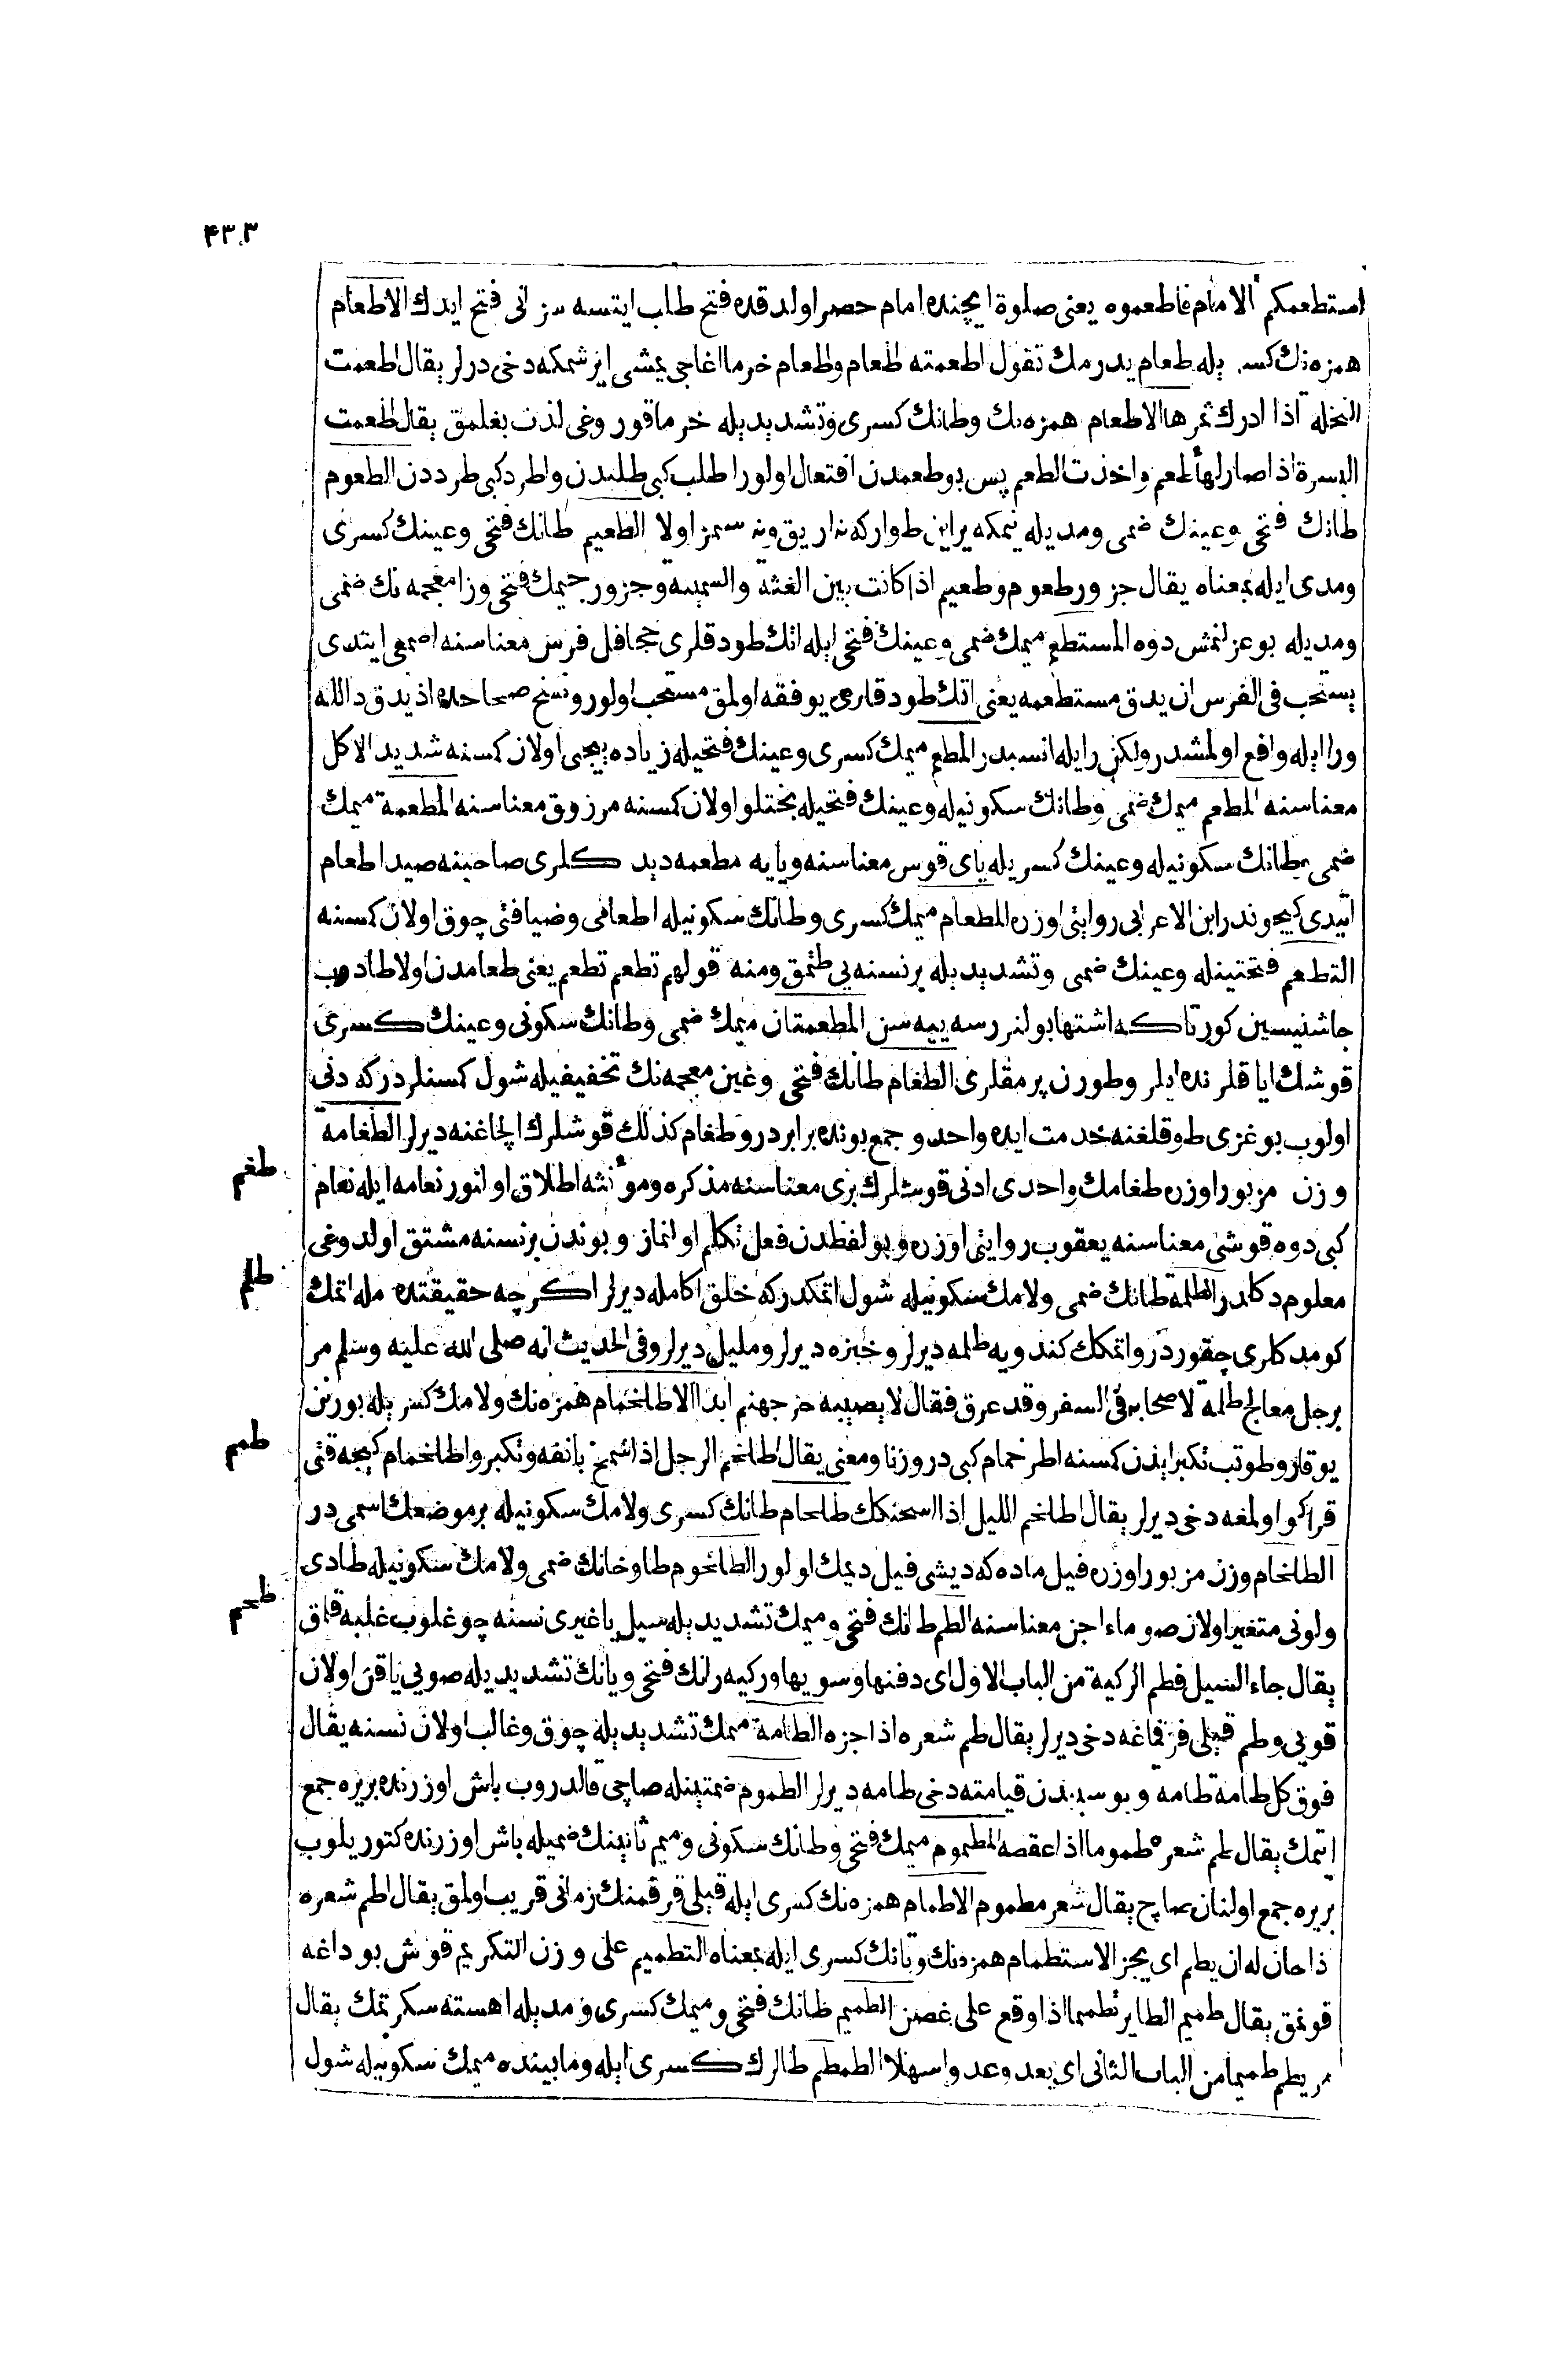 ۴۳۰۳
استطعمكم الامام فاطعموه يعنى صلوة ايچنده امام حصر اولدقده فتح طلب ايتسه سز انى فتح ايدك الاطعام
همزه نك كسريله طعام يدرمك تقول اطعمته طعام واطعام خرما اغاجى يمشى ايرشمكه دخى درلر يقال اطعمت
النخلة اذا ادرك ثمرها الاطعام همزه نك وطانك كسرى وتشديديله خرما قوروغى لذت بغلمق يقال اطعمت
البسرة اذا صار لها طعم واخذت الطعم پس بو طعمدن افتعال اولور اطلب كبى طلبدن واطرد كبى طرددن الطعوم
طانك فتحى وعينك ضمى ومديله ينمكه يراين طواركه نه اريق ونه سمز اولا الطعيم طانك فتحى وعينك كسرى
ومدى ايله بمعناه يقال جزور طعوم وطعيم اذا كانت بين الغثة والسمينة وجزور جيمك فتحى وزا معجمه نك ضمى
ومديله بوغزلنمش دوه المستطعم ميمك ضمى وعينك فتحى ايله اتك طودقلرى جحافل فرس معناسنه اصمعى ايتدى
يستحب فى الفرس ان يدق مستطعمه يعنى اتك طودقلرى يوفقه اولمق مستحب اولور ونسخ صحاحده اذ يدق دالله
ورا ايله واقع اولمشدر ولكن رايله انسبدر المطعم ميمك كسرى وعينك فتحيله زياده ييجى اولان كمسنه شديد الاكل
معناسنه المطعم ميمك ضمى وطانك سكونيله وعينك فتحيله بختلو اولان كمسنه مرزوق معناسنه المطعمة ميمك
ضمى وطانك سكونيله وعينك كسريله ياى قوس معناسنه ويايه مطعمه ديدكلرى صاحبنه صيد اطعام
اتيدى كيچوندر ابن الاعرابى روايتى اوزره المطعام ميمك كسرى وطانك سكونيله اطعامى وضيافتى چوق اولان كمسنه
التطعم فتحتينله وعينك ضمى وتشديديله برنسنه يى طتمق ومنه قولهم تطعم تطعم يعنى طعامدن اولا طادوب
جاشنيسين كور تاكه اشتها بولنررسه ييه سن المطعمتان ميمك ضمى وطانك سكونى وعينك كسرى
قوشك اياقلرنده ايلر وطورن پرمقلرى الطغام طانك فتحى وغين معجمه نك تخفيفيله شول كمسنلردركه دنى
اولوب بوغزى طوقلغنه خدمت ايده واحد و جمع بونده برابردر وطغام كذلك قوشلرك الچاغنه ديرلر الطغامه
وزن مزبور اوزره طغامك واحدى ادنى قوشلرك برى معناسنه مذكره ومؤنثه اطلاق اولنور نعامه ايله نعام
كبى دوه قوشى معناسنه يعقوب روايتى اوزره وبو لفظدن فعل تكلم اولنماز وبوندن برنسنه مشتق اولدوغى
معلوم دكلدر الطلمة طانك ضمى ولامك سكونيله شول اتمكدركه خلق اكا مله ديرلر اكرچه حقيقتده مله اتمك
كومدكلرى چقوردر واتمكك كندويه طلمه ديرلر وخبزه ديرلر ومليل ديرلر وفى الحديث انه صلى الله عليه وسلم مر
برجل معالج طلمة لاصحابه فى السفر وقد عرق فقال لا يصيبه حر جهنم ابدا الاطلخمام همزه نك ولامك كسريله بورنن
يوقارو طوتب تكبر ايدن كمسنه اطرخمام كبى در وزنا ومعنى يقال اطلخم الرجل اذا شمخ بانفه وتكبر واطلخمام كيجه قتى
قراكو اولمغه دخى ديرلر يقال اطلخم الليل اذا اسحنكك طلحام طانك كسرى ولامك سكونيله بر موضعك اسمى در
الطلخام وزن مزبور اوزره فيل ماده كه ديشى فيل ديمك اولور الطلخوم طا وخانك ضمى ولامك سكونيله طادى
ولونى متغير اولان صو ماء اجن معناسنه الطم طانك فتحى وميمك تشديديله سيل يا غيرى نسنه چوغلوب غلبه قلمق
يقال جاء السيل فطم الركية من الباب الاول اى دفنها وسويها وركيه رانك فتحى ويانك تشديديله صويى ياقن اولان
قويى وطم قيلى قرقماغه دخى ديرلر يقال طم شعره اذا جزه الطامة ميمك تشديديله چوق وغالب اولان نسنه يقال
فوق كل طامة طامه وبو سببدن قيامته دخى طامه ديرلر الطموم ضمتينله صاچى قالدروب باش اوزرنده بريره جمع
اتمك يقال طم شعره طموما اذا عقصه المطموم ميمك فتحى وطانك سكونى وميم ثانينك ضميله باش اوزرنده كتوريلوب
بريره جمع اولنان صاچ يقال شعر مطموم الاطمام همزه نك كسرى ايله قيلى قرقمنك زمانى قريب اولمق يقال اطم شعره
ذا حان له ان يطم اى يجز الاستطمام همزه نك وتانك كسرى ايله بمعناه التطميم على وزن التكريم قوش بوداغه
قونمق يقال طميم الطاير تطميما اذا وقع على غصن الطميم طانك فتحى وميمك كسرى ومديله اهسته سكرتمك يقال
مر يطم طميما من الباب الثانى اى يعد وعدوا سهلا الطمطم طالرك كسرى ايله ومابينده ميمك سكونيله شول
طغم
طلم
طمم
طحم